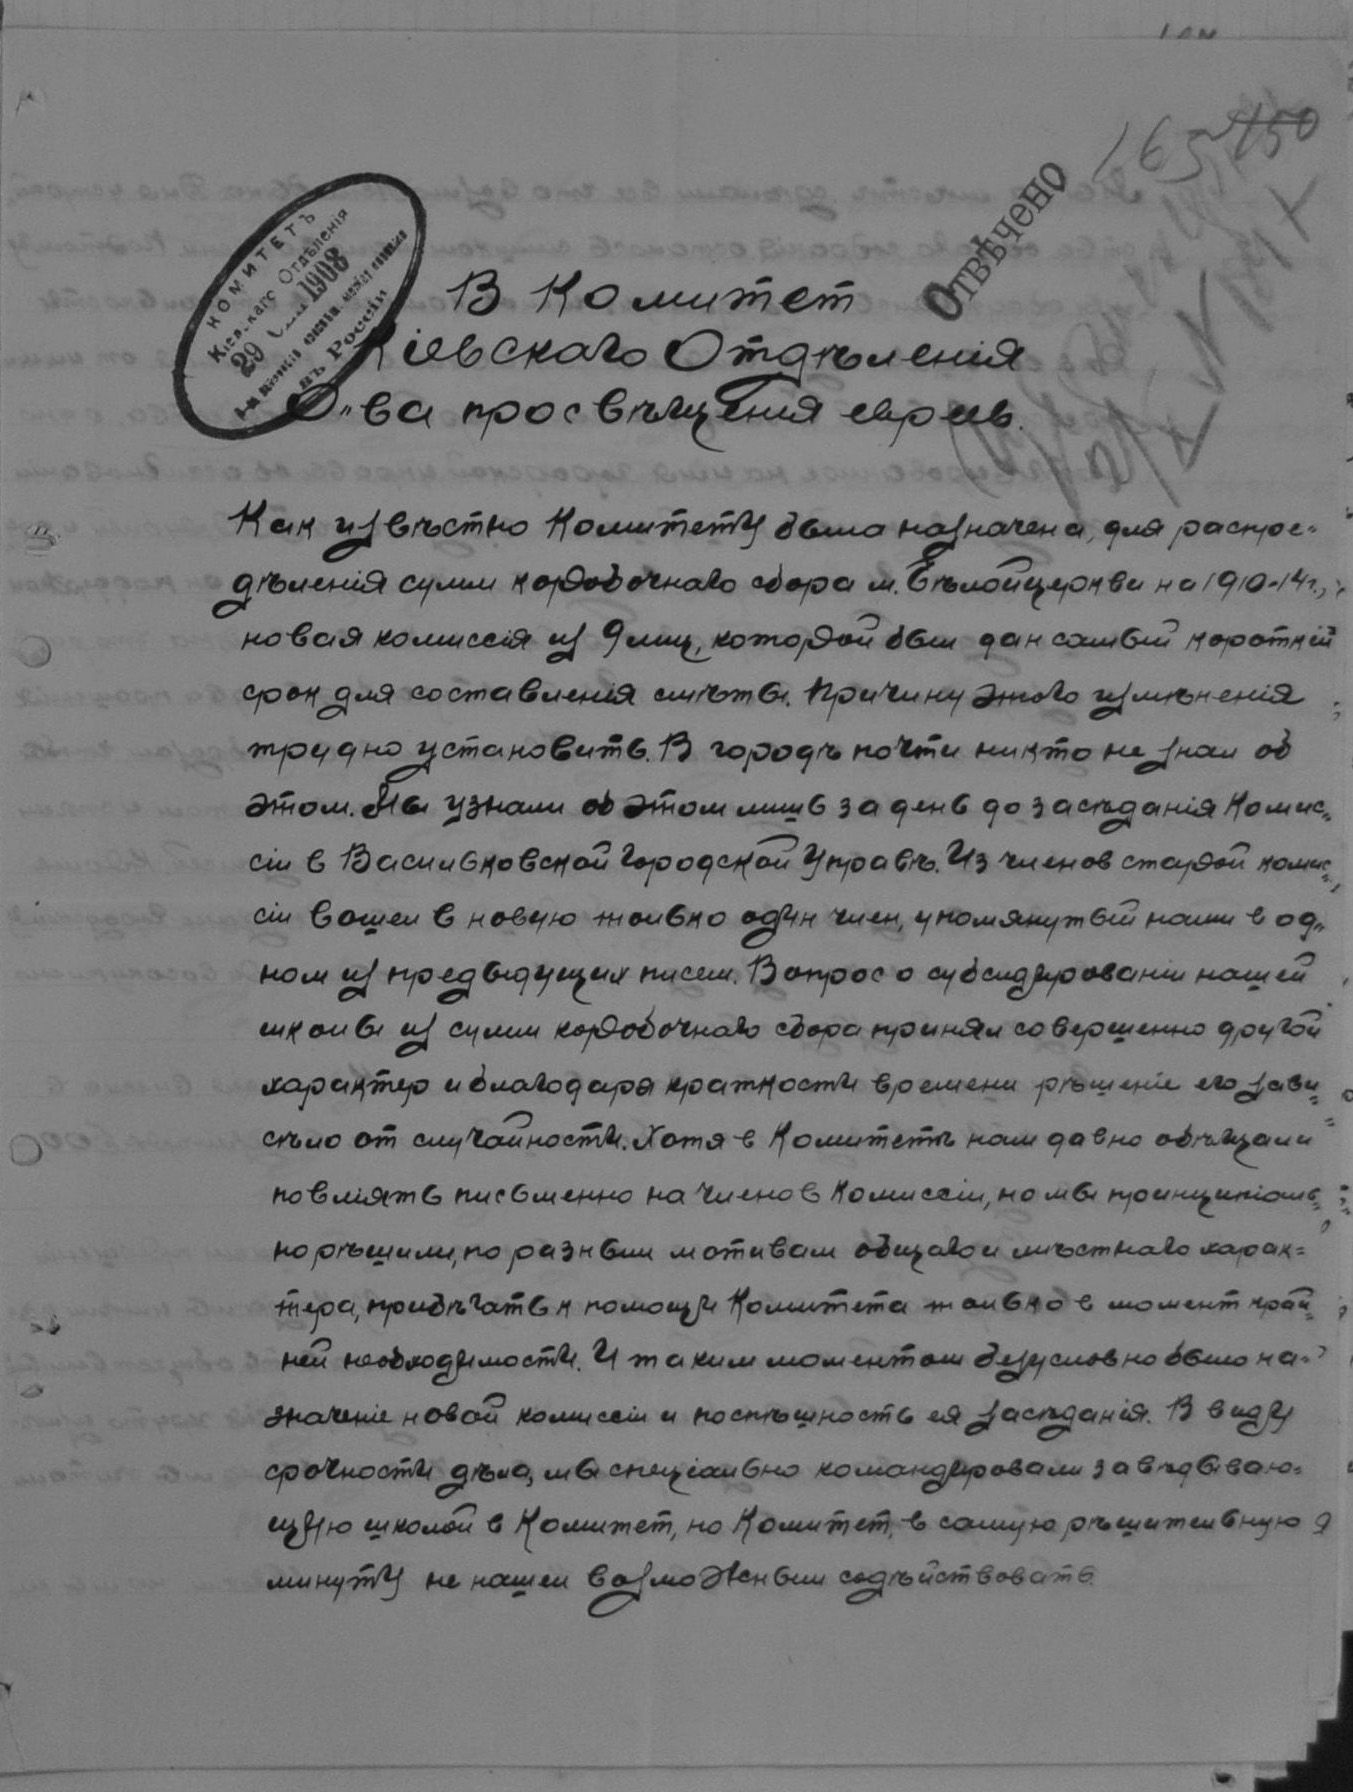 165 150
Отвѣчено
КОМИТЕТЪ
Кіевскаго Отдѣленія
29 1908
въ Россіи
В Комитет
Кіевскаго Отдѣленія
О-ва просвѣщенія евреев.
Как извѣстно Комитету была назначена, для распре-
дѣленія сумм коробочнаго сбора м. Бѣлойцеркви на 1910-14г.,
новая комиссія из 9 лиц, которой был дан самый короткій
срок для составленія смѣты. Причину этого измѣненія
трудно установить. В городѣ почти никто не знал об
этом. Мы узнали об этом лишь за день до засѣданія Комис-
сіи в Васильковской Городской Управѣ. Из членов старой комис-
сіи вошел в новую только один член, упомянутый нами в од-
ном из предыдущих писем. Вопрос о субсидированіи нашей
школы из сумм коробочнаго сбора принял совершенно другой
характер и благодаря краткости времени рѣшеніе его зави-
сѣло от случайности. Хотя в Комитетѣ нам давно обѣщали
повліять письменно на членов Комиссіи, но мы принципіаль-
но рѣшили, по разным мотивам общаго и мѣстнаго харак-
тера, прибѣгать к помощи Комитета только в момент край-
ней необходимости. И таким моментом безусловно было на-
значеніе новой комиссіи и поспѣшность ея засѣданія. В виду
срочности дѣла, мы спеціально командировали завѣдываю-
щую школой в Комитет, но Комитет, в самую рѣшительную
минуту не нашел возможным содѣйствовать